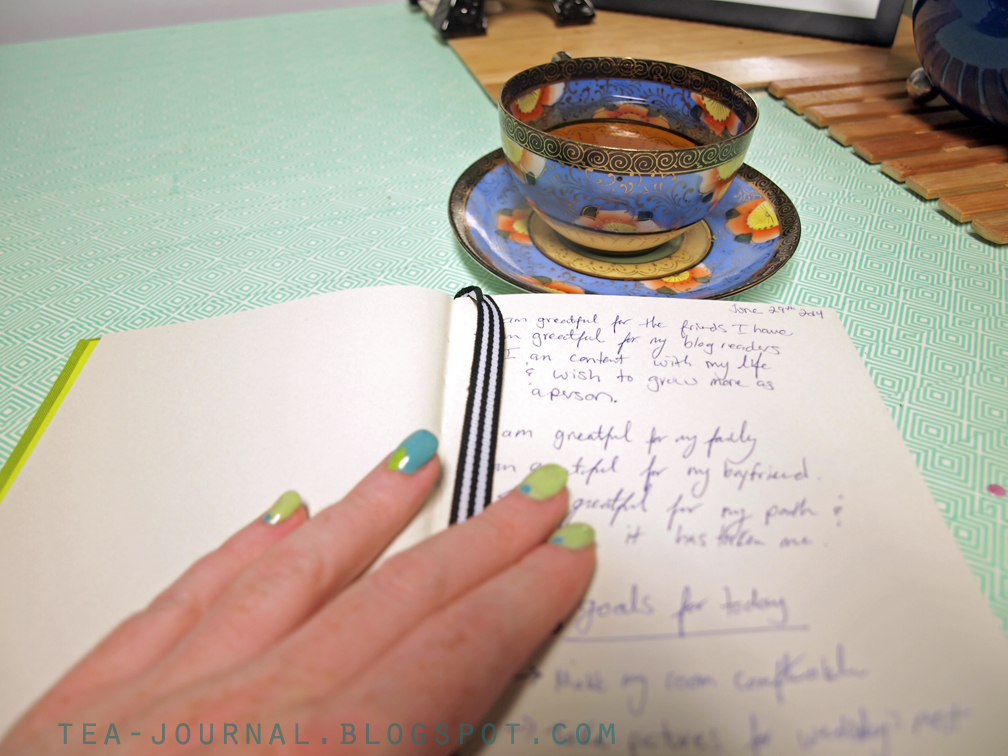 June 29th 2014
am greatful for the friends I have
greatful for my blog readers
I am content with my life
& wish to grow more as
a person.
am greatful for my family
greatful for my boyfriend.
greatful for my path &
it has taken me.
goals for today
Make my room comfortable
pictures for
TEA-JOURNAL.BLOGSPOT.COM